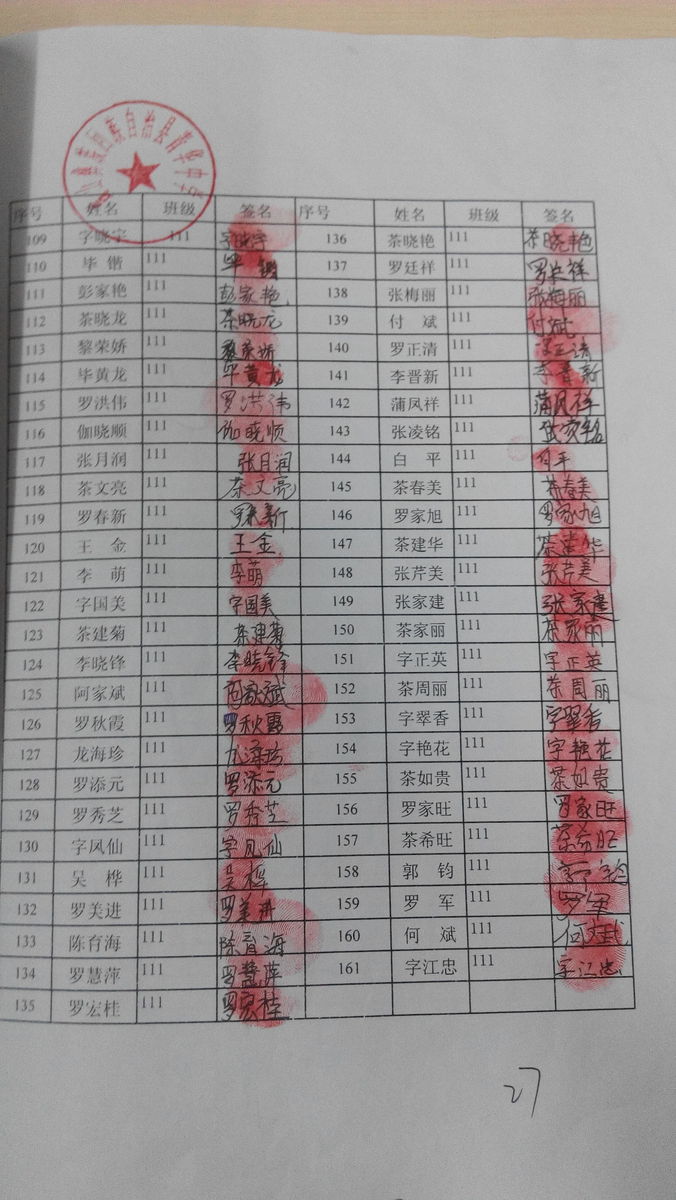 自治县
序号 姓名 班级 签名 序号 姓名 班级 签名
109 字晓宇 111 字晓宇 136 茶晓艳 111 茶晓艳
110 毕锴 111 毕锴 137 罗廷祥 111 罗廷祥
111 彭家艳 111 彭家艳 138 张梅丽 111 张梅丽
112 茶晓龙 111 茶晓龙 139 付斌 111 付斌
113 黎荣娇 111 黎荣娇 140 罗正清 111 罗正清
114 毕黄龙 111 毕黄龙 141 李晋新 111 李晋新
115 罗洪伟 111 罗洪伟 142 蒲凤祥 111 蒲凤祥
116 伽晓顺 111 伽晓顺 143 张凌铭 111
117 张月润 111 张月润 144 白平 111 白平
118 茶文亮 111 茶文亮 145 茶春美 111 茶春美
119 罗春新 111 罗春新 146 罗家旭 111 罗家旭
120 王金 111 王金 147 茶建华 111 茶建华
121 李萌 111 李萌 148 张芹美 111 张芹美
122 字国美 111 字国美 149 张家建 111 张家建
123 茶建菊 111 茶建菊 150 茶家丽 111 茶家丽
124 李晓锋 111 李晓锋 151 字正英 111 字正英
125 阿家斌 111 阿家斌 152 茶周丽 111 茶周丽
126 罗秋霞 111 罗秋霞 153 字翠香 111 字翠香
127 龙海珍 111 龙海珍 154 字艳花 111 字艳花
128 罗添元 111 罗添元 155 茶如贵 111 茶如贵
129 罗秀芝 111 罗秀芝 156 罗家旺 111 罗家旺
130 字凤仙 111 字凤仙 157 茶希旺 111 茶希旺
131 吴桦 111 吴桦 158 郭钧 111
132 罗美进 111 罗美进 159 罗军 111 罗军
133 陈育海 111 陈育海 160 何斌 111 何斌
134 罗慧萍 111 罗慧萍 161 字江忠 111 字江忠
135 罗宏桂 111 罗宏桂
27